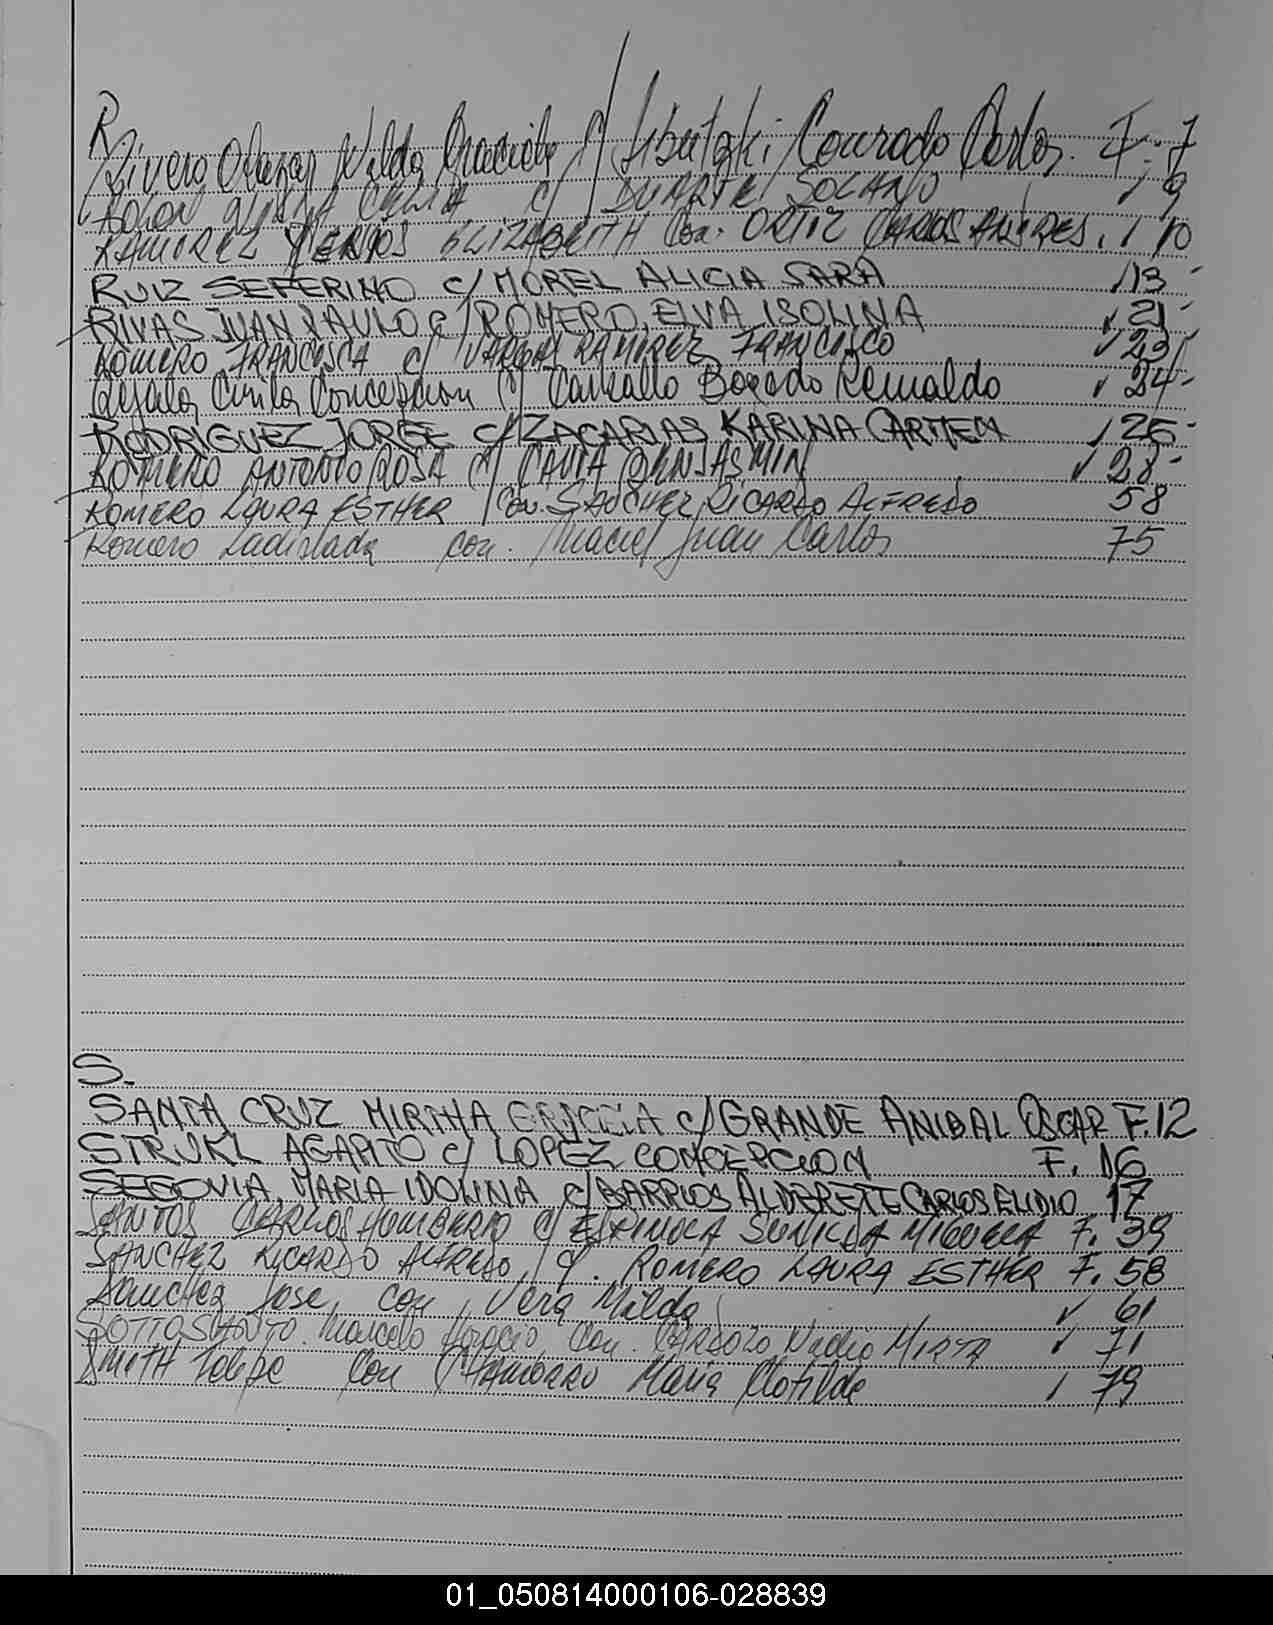 R
Rivero Nilda Graciela c/ Conrado Carlos. F. 7
CELIA c/ DUARTE SOLANO 9
RAMIREZ ELIZABETH Con. ORTIZ CARLOS ANDRES. 10
RUIZ SEFERINO c/ MOREL ALICIA SARA 13
RIVAS JUAN PAULO c/ ROMERO, ELVA ISOLINA 21
ROMERO FRANCISCA c/ VARGAS RAMIREZ FRANCISCO 23
Cirila Concepcion c/ Carballo Bogado Reinaldo 24
RODRIGUEZ JORGE c/ ZACARIAS KARINA CARMEN 26
ROMERO ANTONIO ROSA c/ JASMIN 28
ROMERO LAURA ESTHER Con. SANCHEZ RICARDO ALFREDO 58
Romero Ladislada con. Maciel Juan Carlos 75
S.
SANTA CRUZ MIRTHA GRACIELA c/ GRANDE ANIBAL OSCAR F. 12
STRUKL AGAPITO c/ LOPEZ CONCEPCION F. 16
SEGOVIA, MARIA IDOLINA c/ BARRIOS ALDERETE CARLOS ELIDIO 17
SANTOS CARLOS HUMBERTO c/ ESPINOLA MIGUELA F. 39
SANCHEZ RICARDO ALFREDO c/. ROMERO LAURA ESTHER F. 58
Sanchez Jose, con, Vera Milda 61
SOTTOSANTO. Marcelo Horacio, Con. CARDOZO MIRTA 71
SMITH Felipe Con CHAMORRO Maria Clotilde 79
01_050814000106-028839